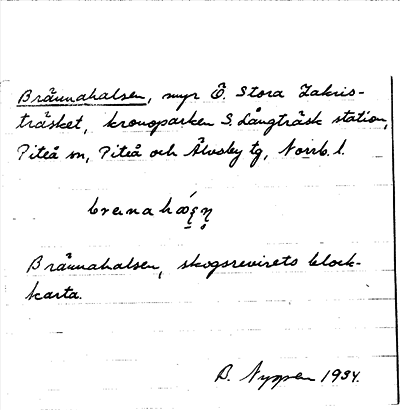 Brännahalsen, myr Ö. Stora Zakris-
träsket, kronoparken S. Långträsk station,
Piteå sn, Piteå och Älvsby tg, Norrb. l.
Brännahalsen, skogsrevirets block-
karta.
B. Nyman 1934.